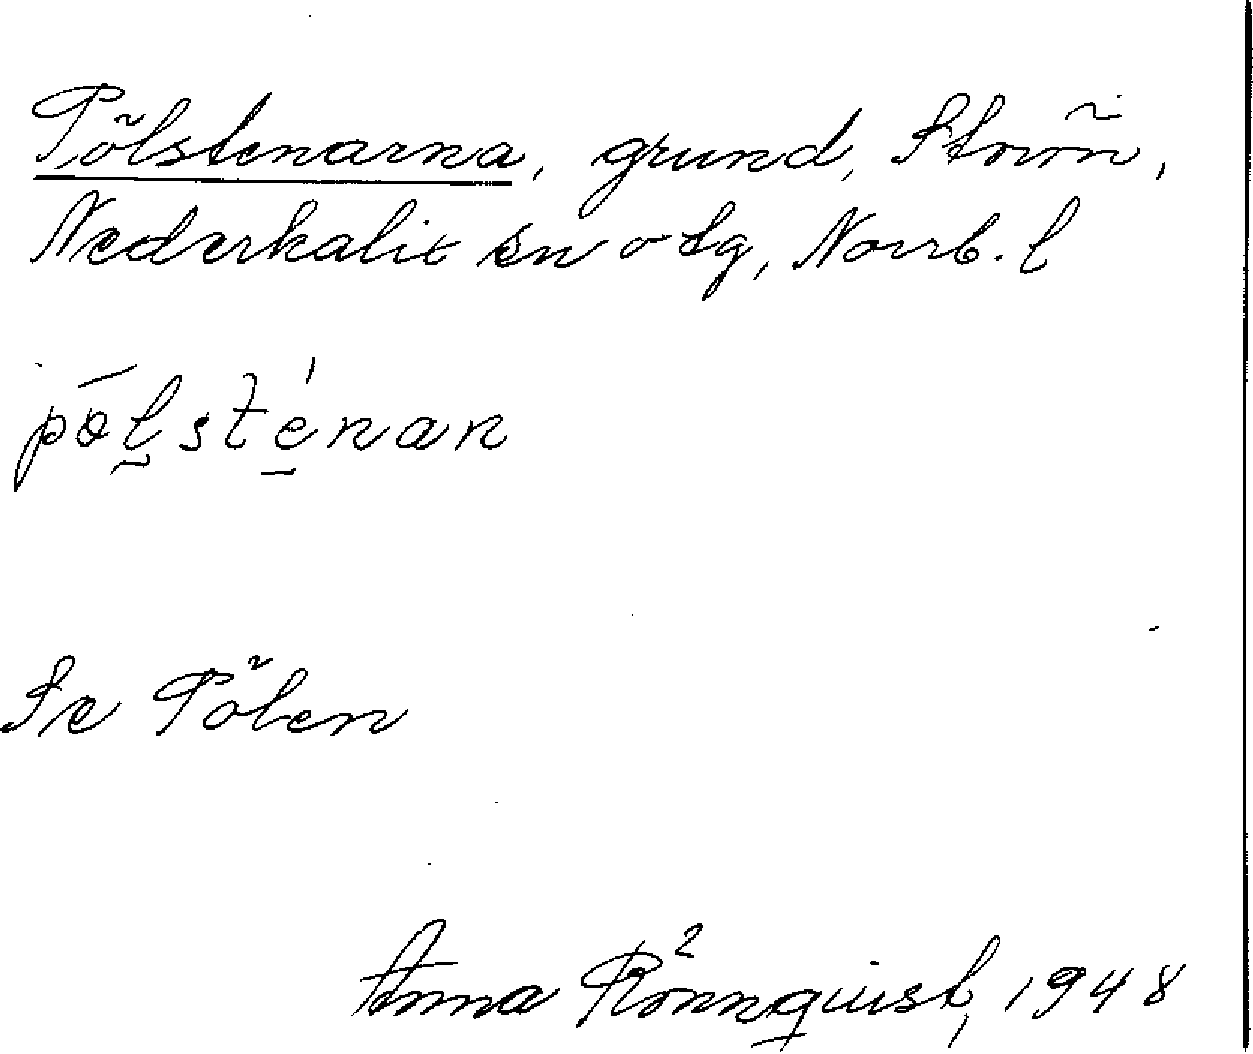 Pölstenarna, grund, Storön,
Nederkalix sn o tg, Norrb. l
pȫl̮sté̠nan
Se Pölen
Anna Rönnquist, 1948